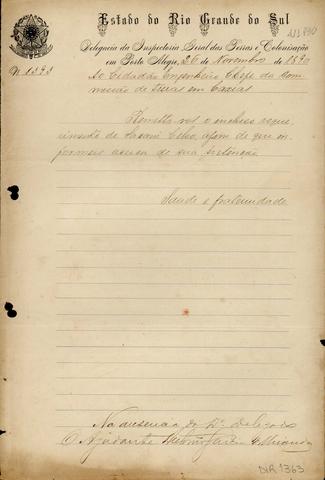 Estado do Rio Grande do Sul
Delegacia da Inspectoria Geral das Terras e Colonisação
em Porto Alegre, 26 de Novembro de 1890
Nº 1393
Ao Cidadão Engenheiro, Chefe da Com-
missão de terras em Caxias
Remetto vos o incluso reque-
rimento de afim de que in-
formeis acerca de sua pretenção
Saude e fraternidade
Na ausencia do Dr. Delegado
O Ajudante
DIR 1363